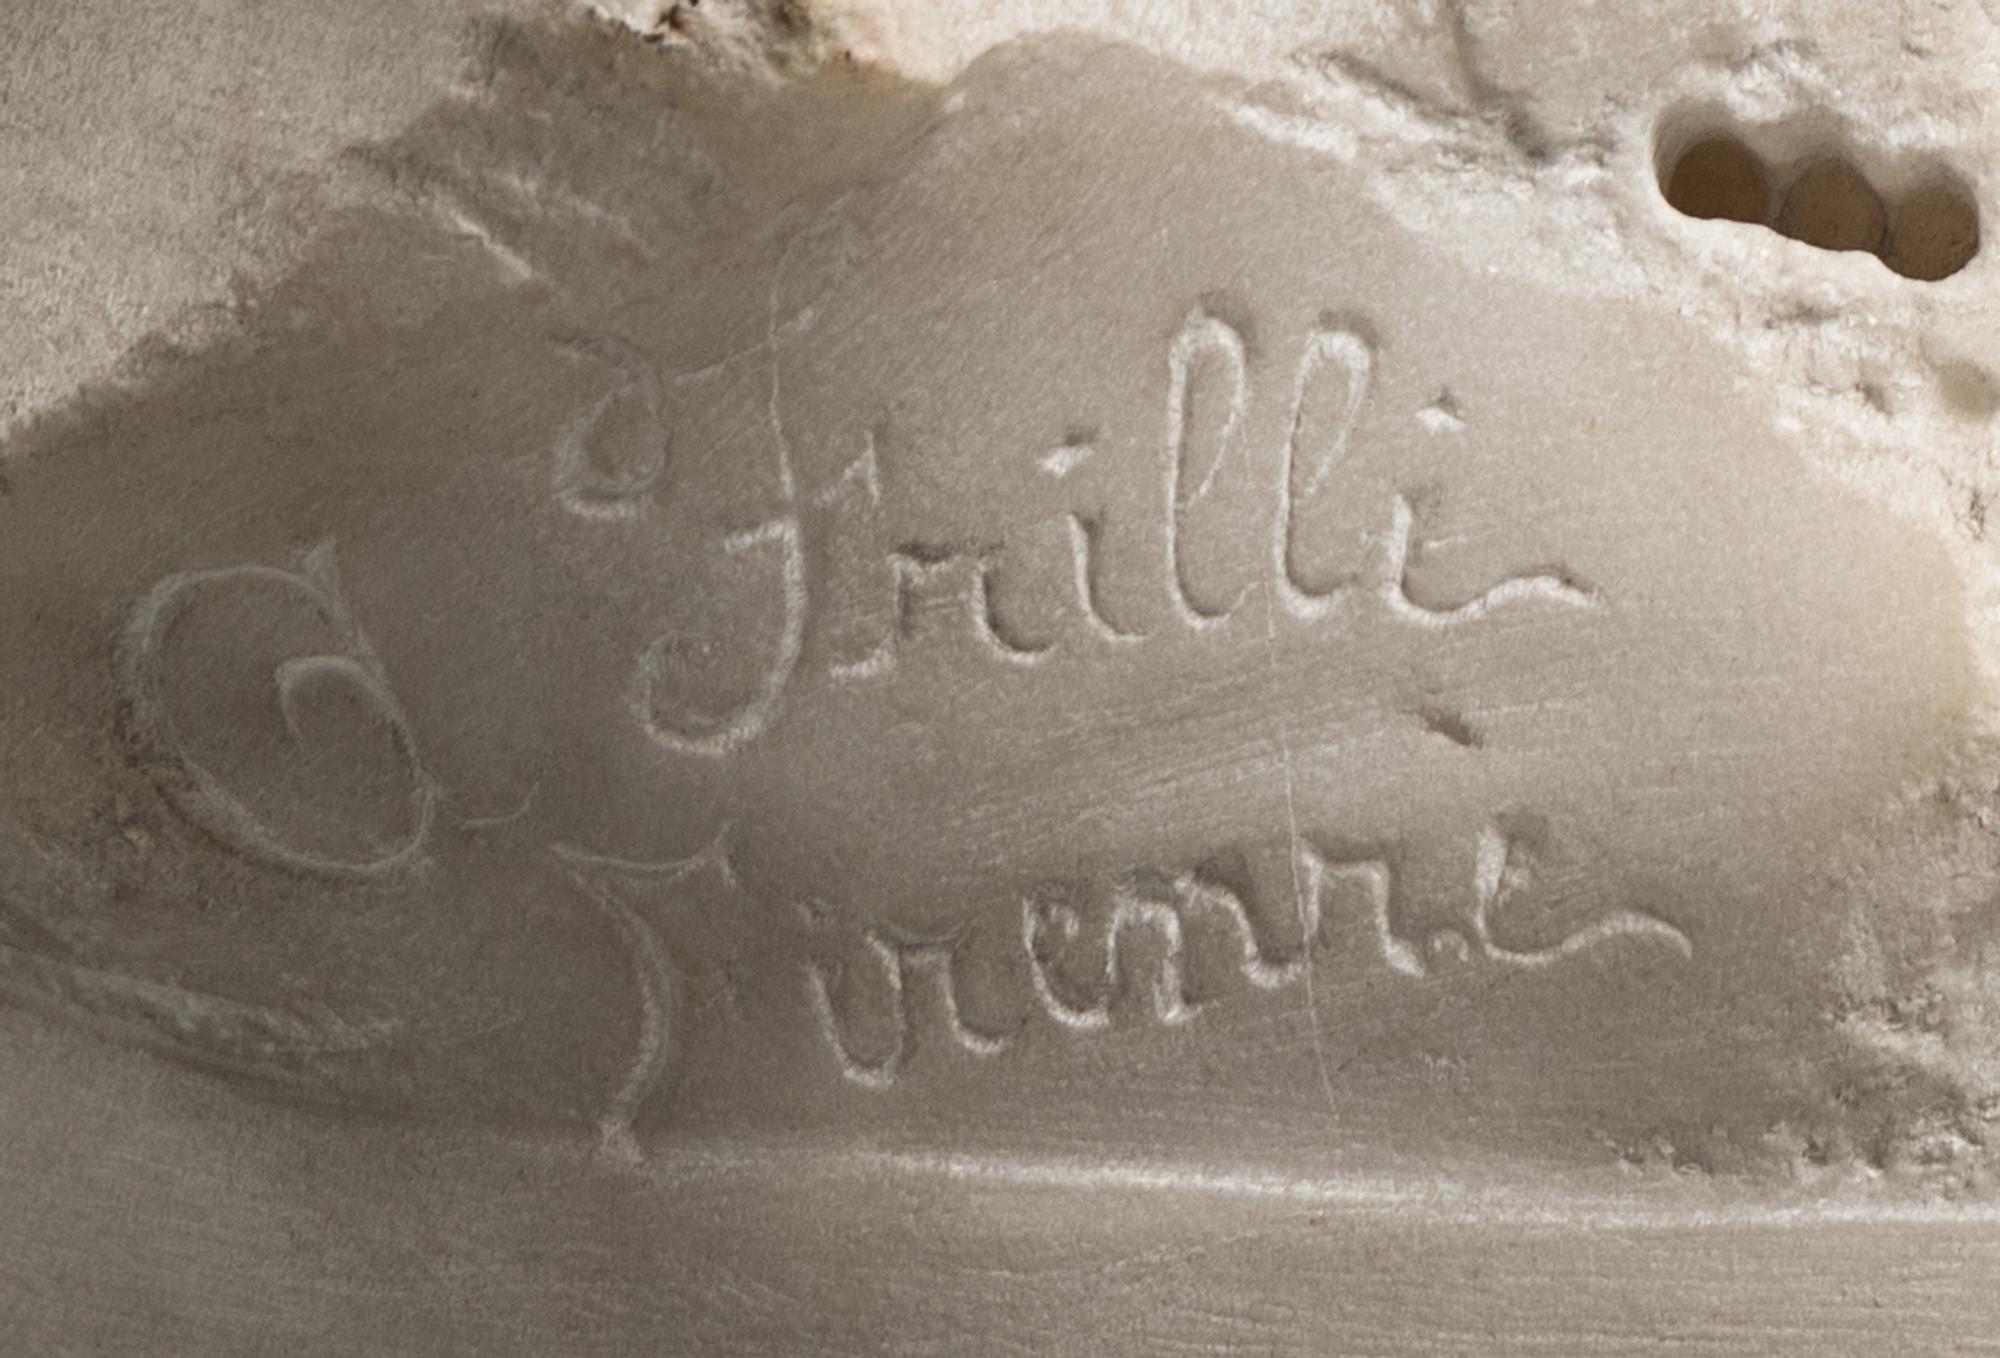 A. Frilli
Firenze